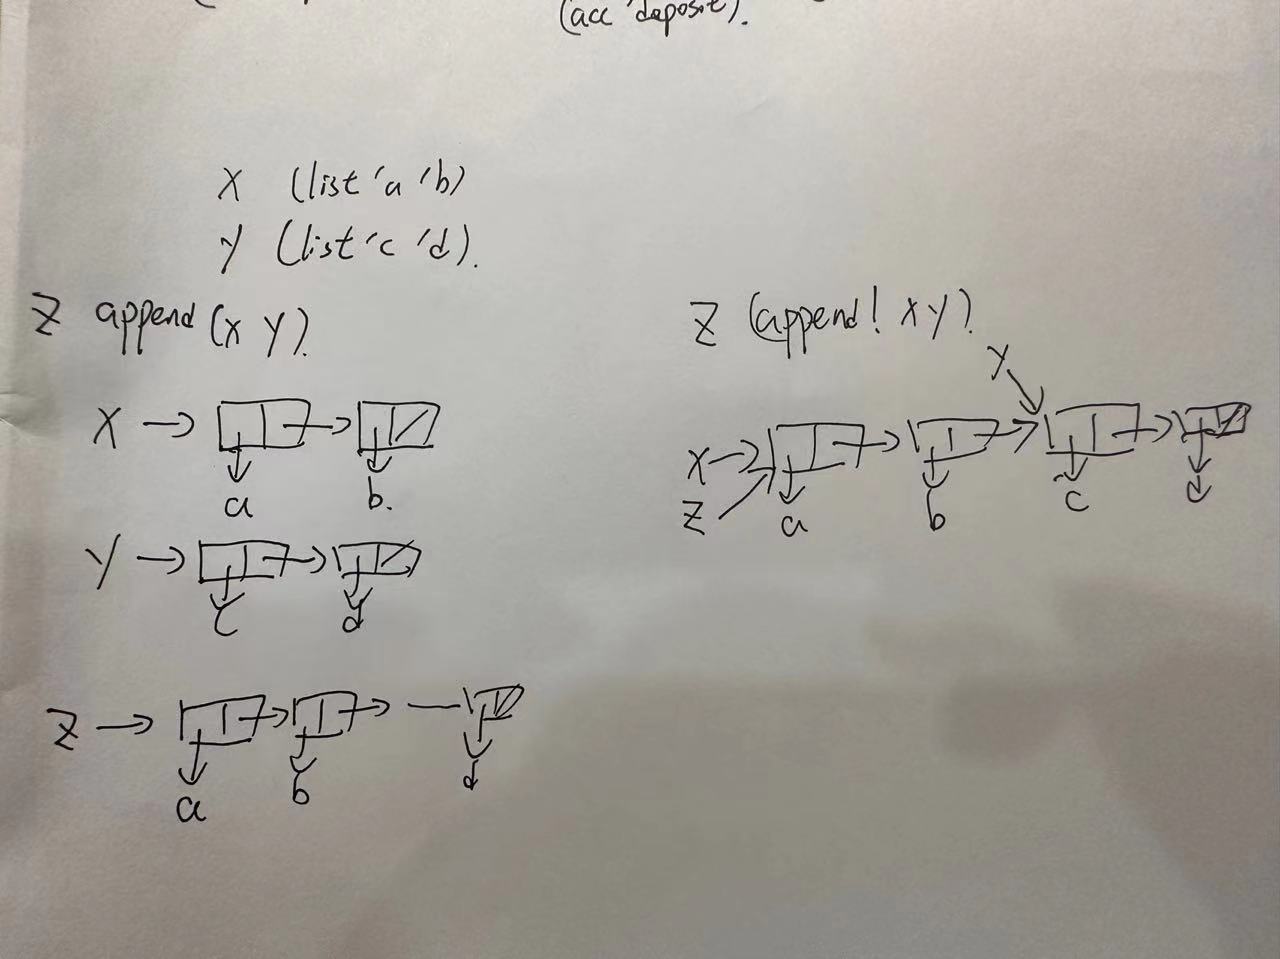 (acc 'deposit).
X (list 'a 'b)
Y (list 'c 'd).
Z append (X Y).
X
a
b.
Y
c
d
Z
a
b
d
Z (append! X Y).
Y
X
Z
a
b
c
d